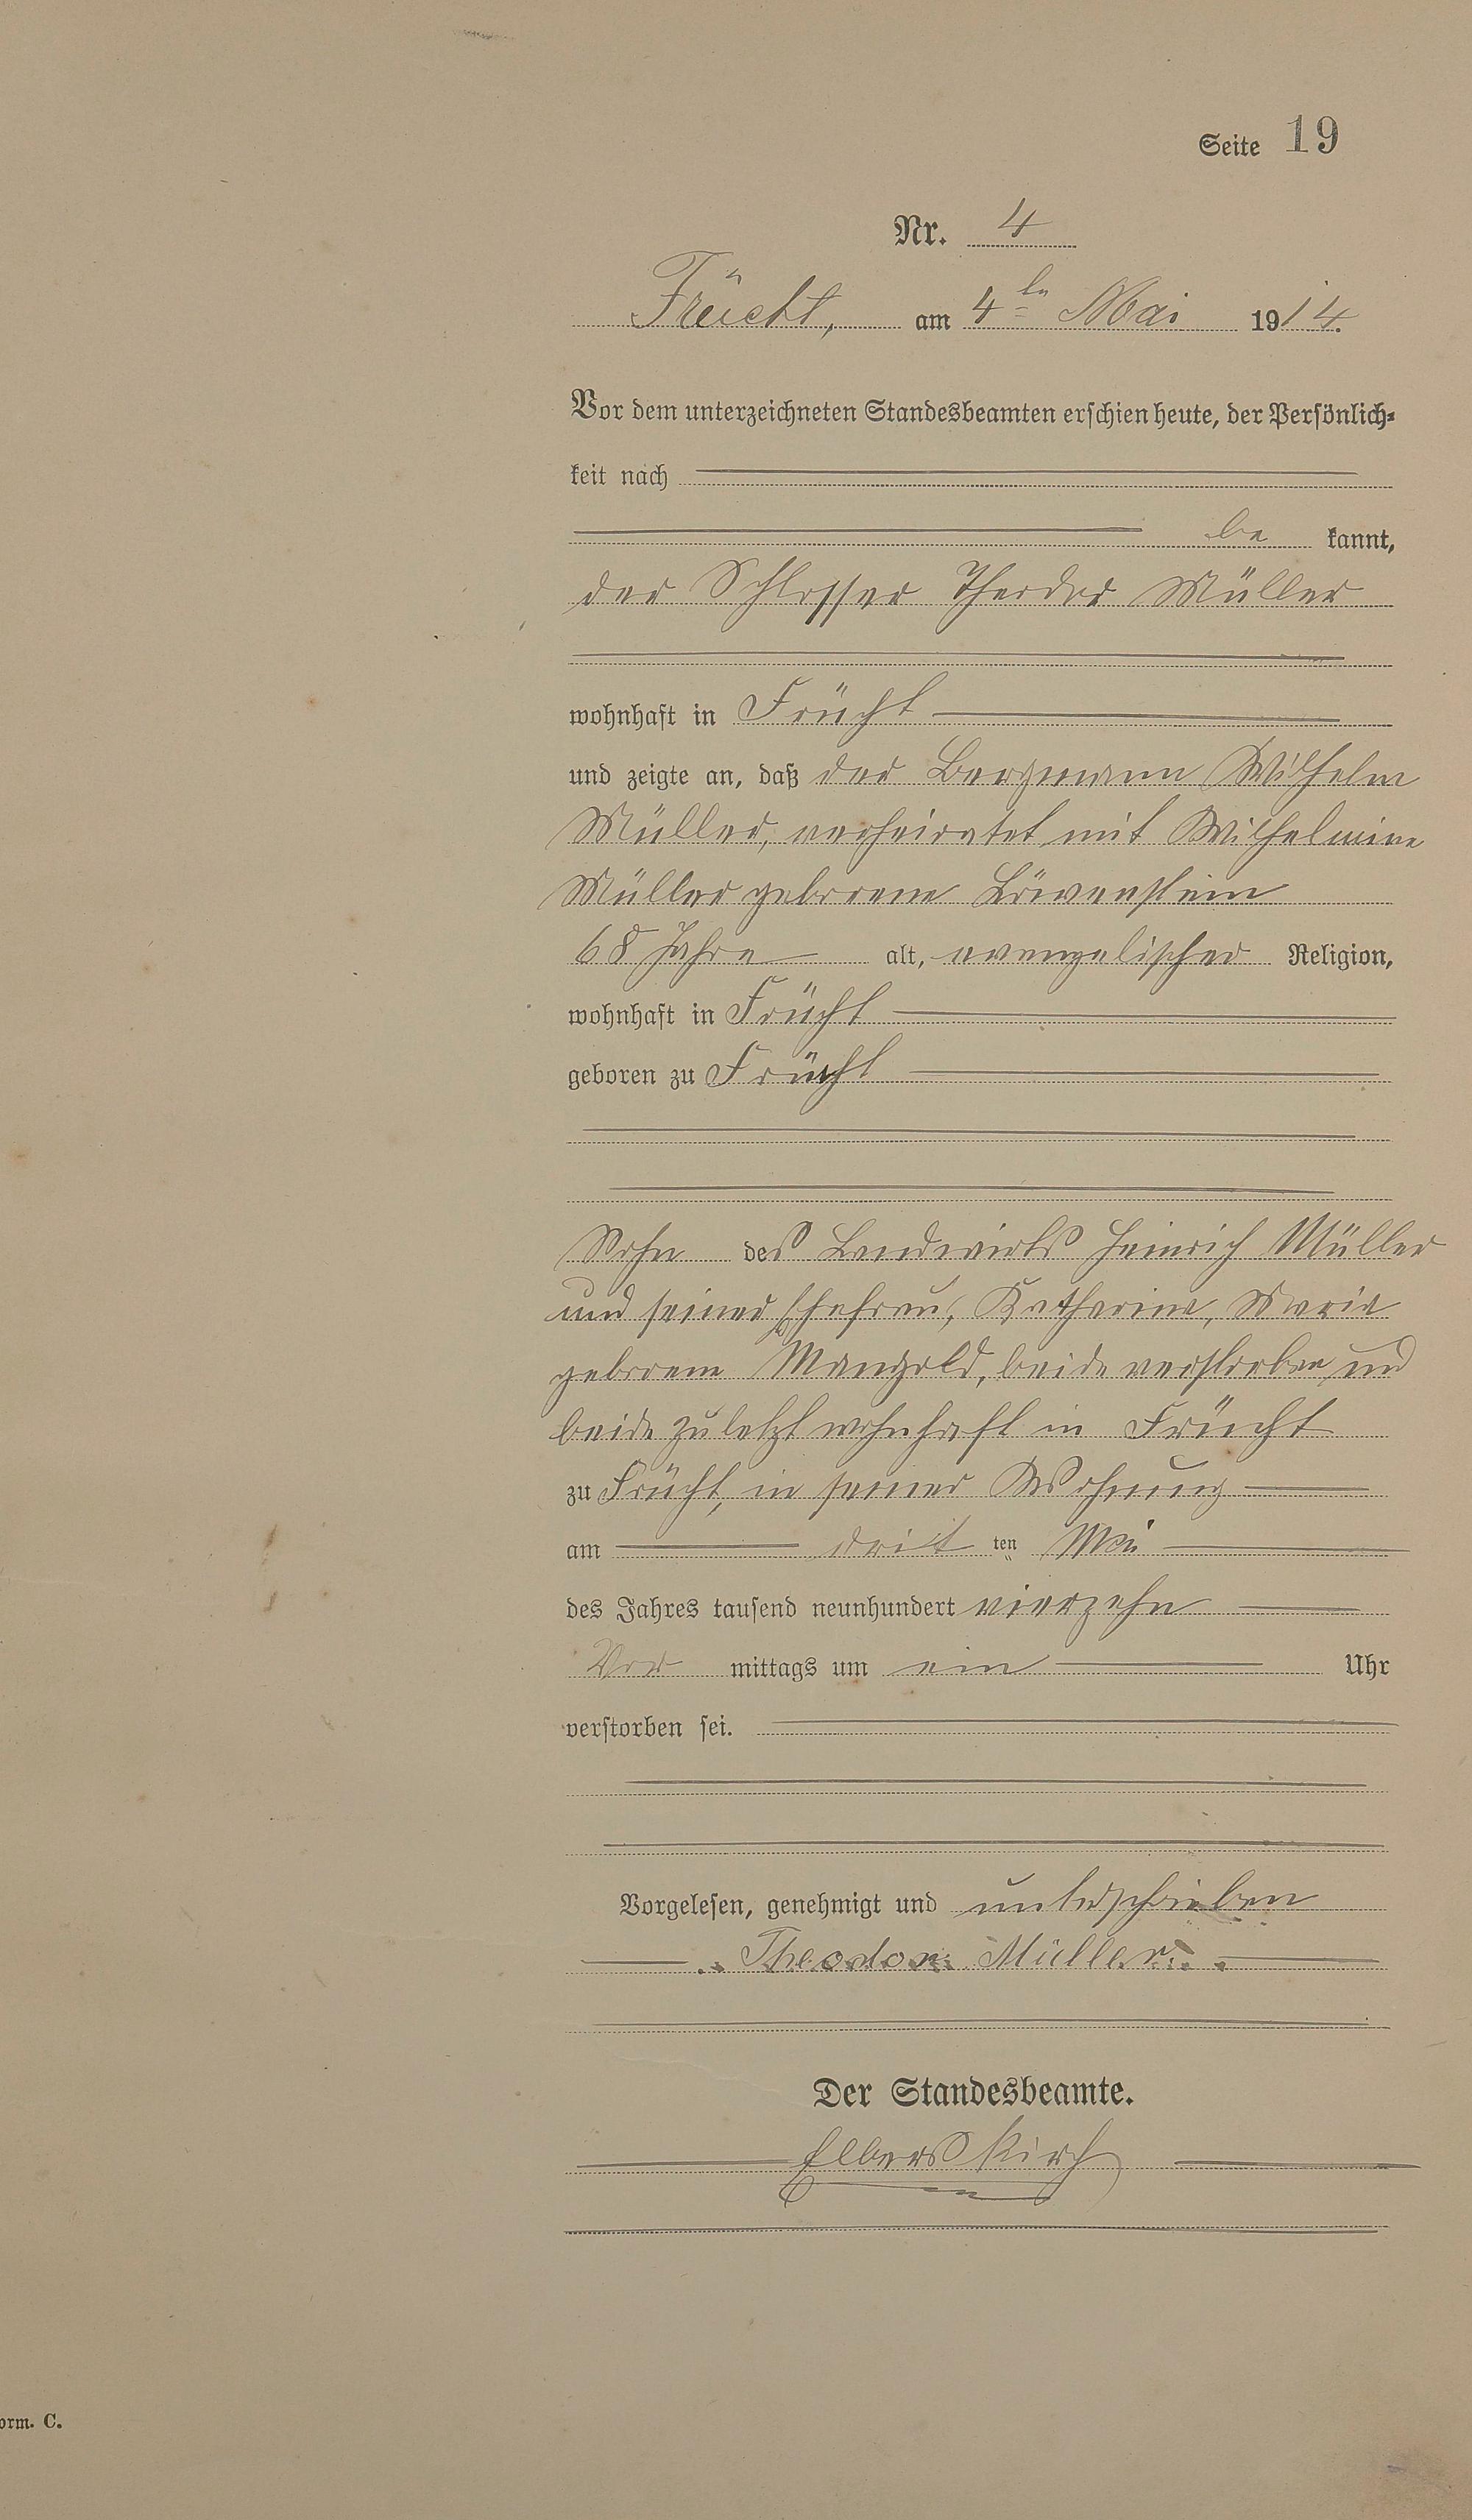 Seite 19
Nr. 4
Frücht, am 4ten Mai 1914.
Vor dem unterzeichneten Standesbeamten erschien heute, der Persönlich-
keit nach
be kannt,
der Schlosser Theodor Müller
wohnhaft in Frücht
und zeigte an, daß der Bergmann Wilhelm
Müller, verheiratet mit Wilhelmine
Müller geborene Löwenstein
68 Jahre alt, evangelischer Religion,
wohnhaft in Frücht
geboren zu Frücht
Sohn des Landwirts Heinrich Müller
und seiner Ehefrau, Katharine, Marie
geborene Mangold, beide verstorben und
beide zuletzt wohnhaft in Frücht
zu Frücht, in seiner Wohnung
am dritten Mai
des Jahres tausend neunhundert vierzehn
Vor mittags um ein Uhr
verstorben sei.
Vorgelesen, genehmigt und unterschrieben
Theodor Müller
Der Standesbeamte.
Elberskirch
orm. C.